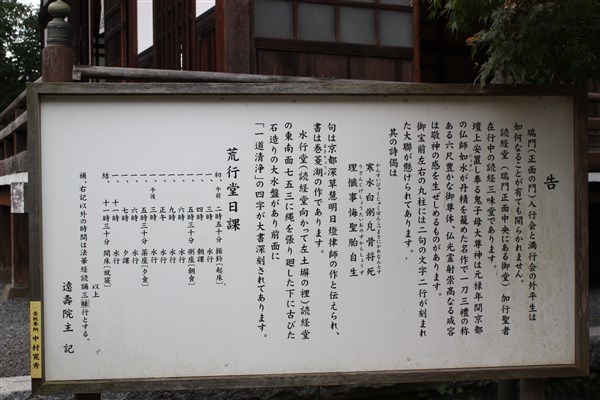 告
瑞門（正面の門）入行会と満行会の外平生は
如何なることが有ても開らかれません。
読経堂（瑞門正面中央にある御堂）加行聖者
在行中の読経三昧堂であります。
壇上安置し奉る鬼子母大尊神は元禄年間京都
の仏師如水が丹精を籠めた名作で一刀三禮の称
ある六尺豊かな御尊体「仏光霊射崇高なる威容
は敬神の感を生ぜしめるものがあります。
御宝前左右の丸柱には二句の文字二行が刻まれ
た大聯が懸けられてあります。
其の詩偈は
寒水白粥凡骨将死
理懺事悔聖胎自生
句は京都深草慧明日燈律師の作と伝えられ、
書は巻菱湖の作であります。
水行堂（読経堂向かって左土塀の裡）読経堂
の東南面七五三に縄を張り廻した下に古びた
石造りの大水盤があり前面に
「一道清浄」の四字が大書深刻されてあります。
荒行堂日課
初、午前 二時五十分 振鈴（起床）、
一、三時 水行
二、四時 朝課
五時三十分 粥座（朝食）
六時 水行
九時 水行
正午 水行
午後 三時 水行
五時三十分 薬座（夕食）
六時 水行
七時 夕課
十一時 水行
結、十一時三十分 開床（就寝）
以上
補、右記以外の時間は法華経読誦三昧行とする。
遠壽院主 記
告板奉納 中村寛秀